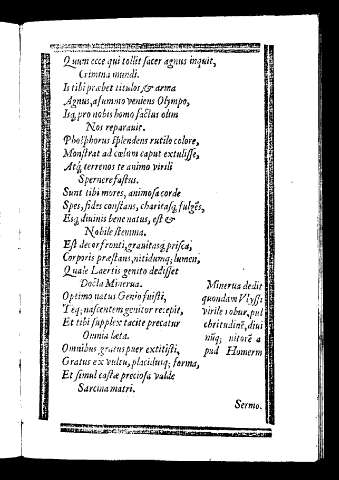 Quum ecce qui tollit sacer agnus inquit,
Crimina mundi.
Is tibi præbet titulos, & arma
Agnus, a summo veniens Olympo,
Isq́; pro nobis homo factus olim
Nos reparauit.
Phosphorus splendens rutilo colore,
Monstrat ad cœlum caput extulisse,
Atq́; terrenos te animo virili
Spernere fastus.
Sunt tibi mores, animosa corde
Spes, fides constans, charitasq́; fulgẽs,
Esq́; diuinis bene natus, est &
Nobile stemma.
Est decor fronti, grauitasq́; prisca,
Corporis præstans, nitidumq́; lumen,
Quale Laertis genito dedisset
Docta Minerua.
Optimo natus Genio fuisti,
Teq́; nascentem genitor recepit,
Et tibi supplex tacite precatur
Omnia læta.
Omnibus gratus puer extitisti,
Gratus ex vultu, placidaq́; forma,
Et simul castæ preciosa valde
Sarcina matri.
Minerua dedit
quondam Vlyssi
virile robur, pul
chritudinẽ, diui
nũq́; nitorẽ a
pud Homerm
Sermo.